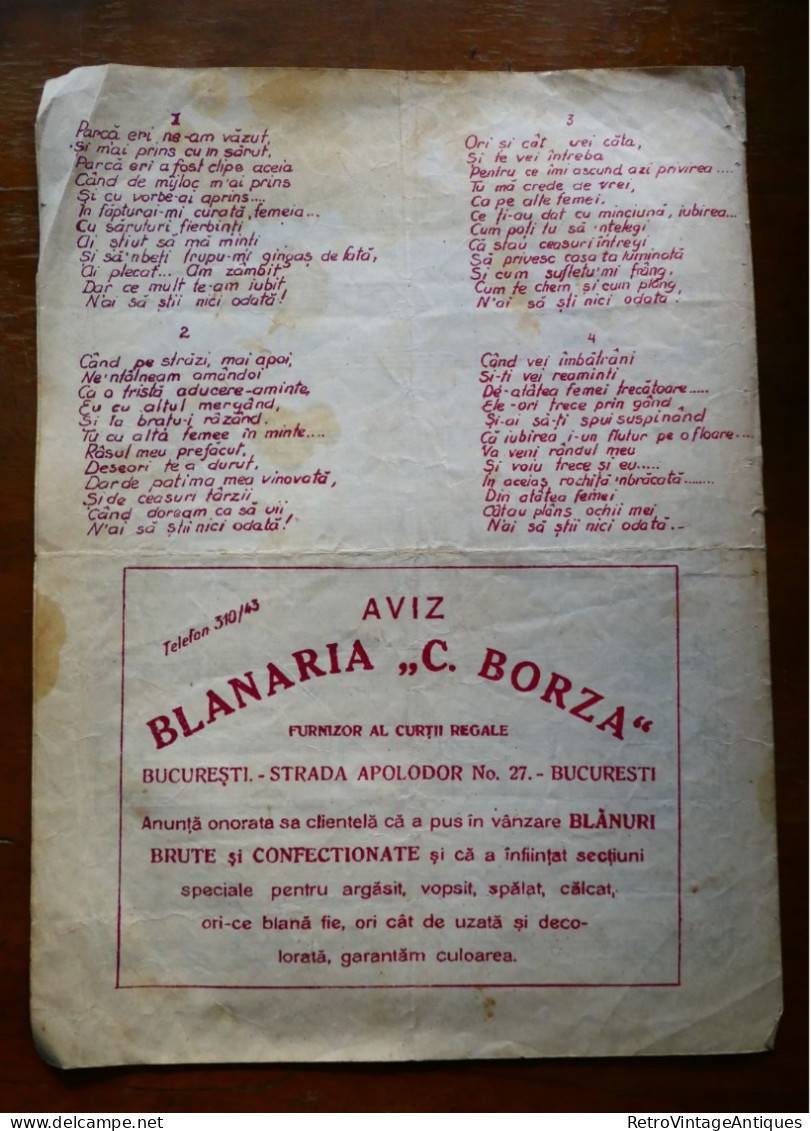 1
Parcă eri ne-am văzut,
Si m'ai prins cu un sărut,
Parcă eri a fost clipe aceia
Când de mijloc m'ai prins
Și cu vorbe-ai aprins....
In făptura-mi curată, femeia...
Cu săruturi fierbinți
Ai știut să mă minti
Și să'nbeți trupu-mi gingaș de fată,
Ai plecat... Am zâmbit
Dar ce mult te-am iubit,
N'ai să știi nici odată!
2
Când pe străzi, mai apoi,
Ne'ntâlneam amândoi
Ca o tristă aducere-aminte,
Eu cu altul mergând,
Și la bratu-i râzând.
Tu cu altă femee în minte....
Râsul meu prefăcut,
Deseori te a durut,
Dar de patima mea vinovată,
Și de ceasuri târzii
Când doream ca să vii,
N'ai să știi nici odată!
3
Ori si cât vei căta,
Și te vei întreba
Pentru ce îmi ascund azi privirea....
Tu mă crede de vrei,
Ca pe alte femei.
Ce ți-au dat cu minciună, iubirea...
Cum poți tu să 'ntelegi
Că stau ceasuri întregi
Să privesc casa ta luminată
Și cum sufletu'mi frâng,
Cum te chem și cum plâng,
N'ai să sti nici odată!
4
Când vei îmbătrâni
Si-ti vei reaminti
De-atâtea femei trecătoare.....
Ele-ori trece prin gând
Și-ai să-ti spui suspinând
Că iubirea i-un flutur pe o floare...
Va veni rândul meu
Și voiu trece și eu.....
În aceiaș rochiță 'nbrăcată........
Din atâtea femei
Câtau plâns ochii mei
N'ai să știi nici odată.-
Telefon 310/43
AVIZ
BLANARIA „C. BORZA“
FURNIZOR AL CURȚII REGALE
BUCUREȘTI.- STRADA APOLODOR No. 27.- BUCURESTI
Anunță onorata sa clientelă că a pus în vânzare BLĂNURI
BRUTE și CONFECTIONATE și că a înființat secțiuni
speciale pentru argăsit, vopsit, spălat, călcat,
ori-ce blană fie, ori cât de uzată și deco-
lorată, garantăm culoarea.
delcampe.net
RetroVintageAntiques